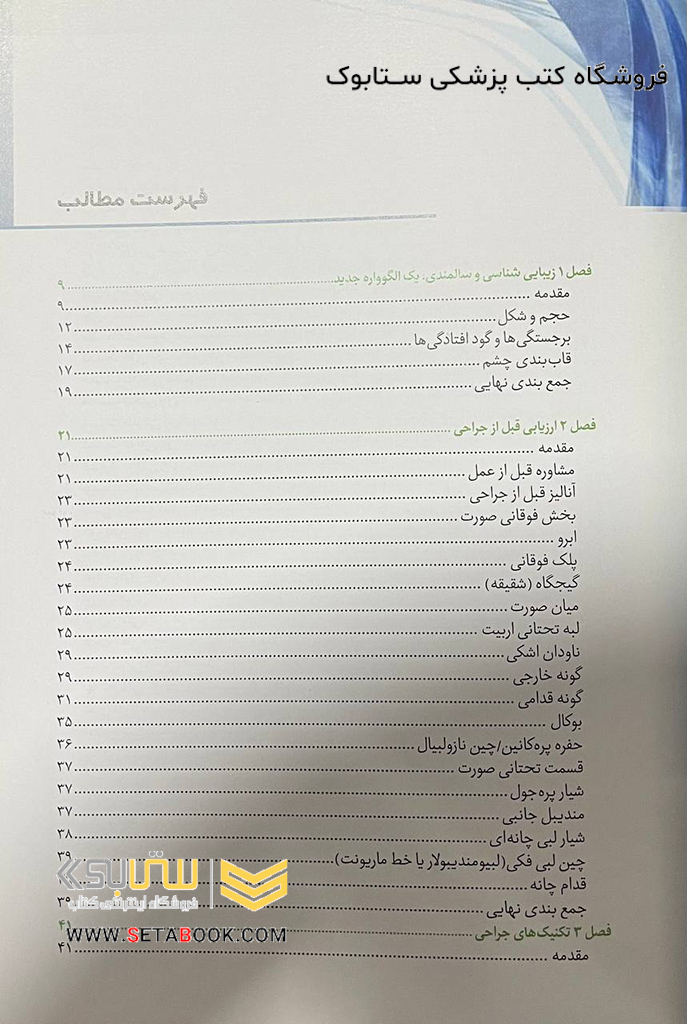 فروشگاه کتب پزشکی ستابوک
فهرست مطالب
فصل ۱ زیبایی شناسی و سالمندی: یک الگوواره جدید ........ ۹
مقدمه ........ ۹
حجم و شکل ........ ۱۲
برجستگی‌ها و گود افتادگی‌ها ........ ۱۴
قاب‌بندی چشم ........ ۱۷
جمع بندی نهایی ........ ۱۹
فصل ۲ ارزیابی قبل از جراحی ........ ۲۱
مقدمه ........ ۲۱
مشاوره قبل از عمل ........ ۲۱
آنالیز قبل از جراحی ........ ۲۳
بخش فوقانی صورت ........ ۲۳
ابرو ........ ۲۳
پلک فوقانی ........ ۲۴
گیجگاه (شقیقه) ........ ۲۴
میان صورت ........ ۲۵
لبه تحتانی اربیت ........ ۲۵
ناودان اشکی ........ ۲۹
گونه خارجی ........ ۲۹
گونه قدامی ........ ۳۱
بوکال ........ ۳۵
حفره پره‌کانین/چین نازولبیال ........ ۳۶
قسمت تحتانی صورت ........ ۳۷
شیار پره‌جول ........ ۳۷
مندیبل جانبی ........ ۳۷
شیار لبی چانه‌ای ........ ۳۸
چین لبی فکی(لبیومندیبولار یا خط ماریونت) ........ ۳۹
قدام چانه ........
جمع بندی نهایی ........ ۳۹
فصل ۳ تکنیک‌های جراحی ........ ۴۱
مقدمه ........ ۴۱
ستابوک
فروشگاه اینترنتی کتاب
WWW.SETABOOK.COM